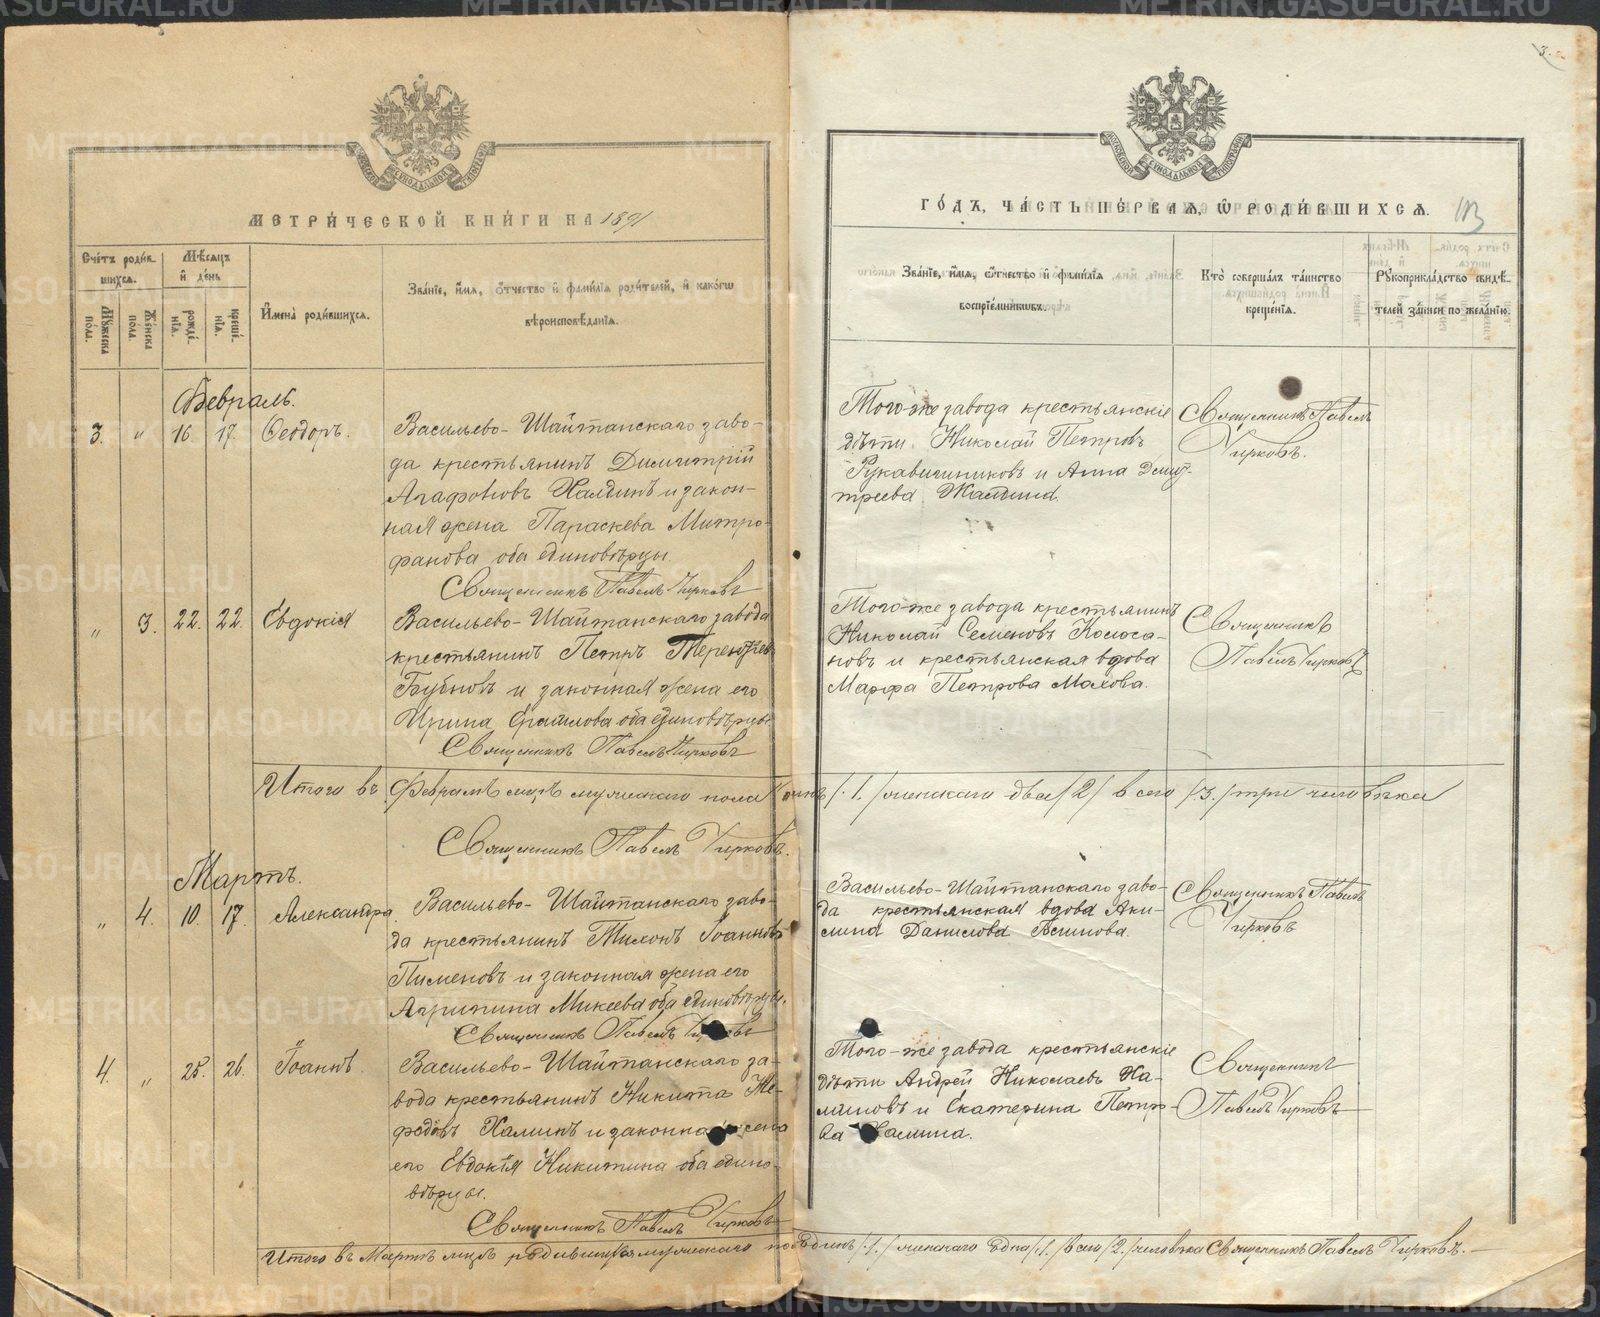 МЕТРИ́ЧЕСКОЙ КНИ́ГИ НА 1891
Сче́тъ роди́вшихся.
Мѣ́сяцъ и҆ де́нь
Мꙋ́жеска по́ла.
Же́нска по́ла.
рожде́нїѧ.
креще́нїѧ.
И҆мена̀ роди́вшихсѧ.
Зва́нїе, и҆́мѧ, ѻ҆́тчество и҆ фами́лїѧ роди́телей, и҆ како́гѡ
вѣроисповѣ́данїѧ.
Февраль.
3. " 16. 17. Ѳеодоръ.
Васильево-Шайтанскаго заво-
да крестьянинъ Димитрій
Агафоновъ Халдинъ и закон-
ная жена Параскева Митро-
фанова оба единовѣрцы
Священникъ Павелъ Чирковъ
" 3. 22. 22. Евдокія
Васильево-Шайтанскаго завода
крестьянинъ Петръ Терентьев
и законная жена его
Ирина оба единовѣрцы
Священникъ Павелъ Чирковъ
Итого въ Февралѣ мцѣ мужескаго пола одинъ /1./ женскаго два /2/ всего /3./ три человѣка
Священникъ Павелъ Чирковъ.
Мартъ.
" 4. 10. 17. Александра.
Васильево-Шайтанскаго заво-
да крестьянинъ Тихонъ Іоанновъ
Пименовъ и законная жена его
Агрипина Микеева оба единовѣрцы.
Священникъ Павелъ Чирковъ
4. " 25. 26. Іоаннъ.
Васильево-Шайтанскаго за-
вода крестьянинъ Никита Ме-
фодовъ Халинъ и законная жена
его Евдокія Никитина оба едино-
вѣрцы.
Священникъ Павелъ Чирковъ
Итого въ Мартѣ мцѣ родившихся мужескаго пола Единъ /1./ женскаго Една /1./ всего /2./ человѣка Священникъ Павелъ Чирковъ.
3.
ГО́ДЪ, ЧА́СТЬ ПЕ́РВАѦ, Ѡ҆ РОДИ́ВШИХСѦ.
Зва́нїе, и҆́мѧ, ѻ҆́тчество и҆ фами́лїѧ
воспрїе́мниковъ.
Кто̀ соверша́лъ та́инство
креще́нїѧ.
Рꙋкоприкла́дство свидѣ́-
телей за́писи по жела́нїю.
Того-же завода крестьянскіе
дѣти Николай Петровъ
Рукавишниковъ и Анна Дмит-
треева Жалдина.
Священникъ Павелъ
Чирковъ.
Того-же завода крестьянинъ
Николай Семеновъ Колоса-
новъ и крестьянская вдова
Марфа Петрова Махова.
Священникъ
Павелъ Чирковъ
Васильево-Шайтанскаго заво-
да крестьянская вдова Аки-
лина Данилова
Священникъ Павелъ
Чирковъ
Того-же завода крестьянскіе
дѣти Андрей Николаевъ Ха-
и Екатерина Петро-
ва Халина.
Священникъ
Павелъ Чирковъ
METRIKI.GASO-URAL.RU